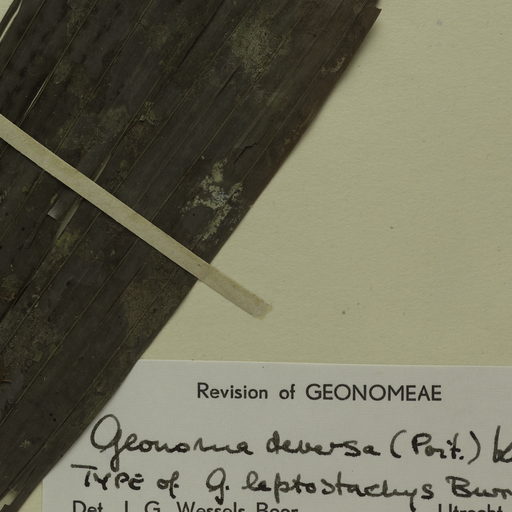 Revision of GEONOMEAE
Geonoma deversa (Poit.)
TYPE of G. leptostachys Burr
Det. J. G. Wessels Boer Utrecht